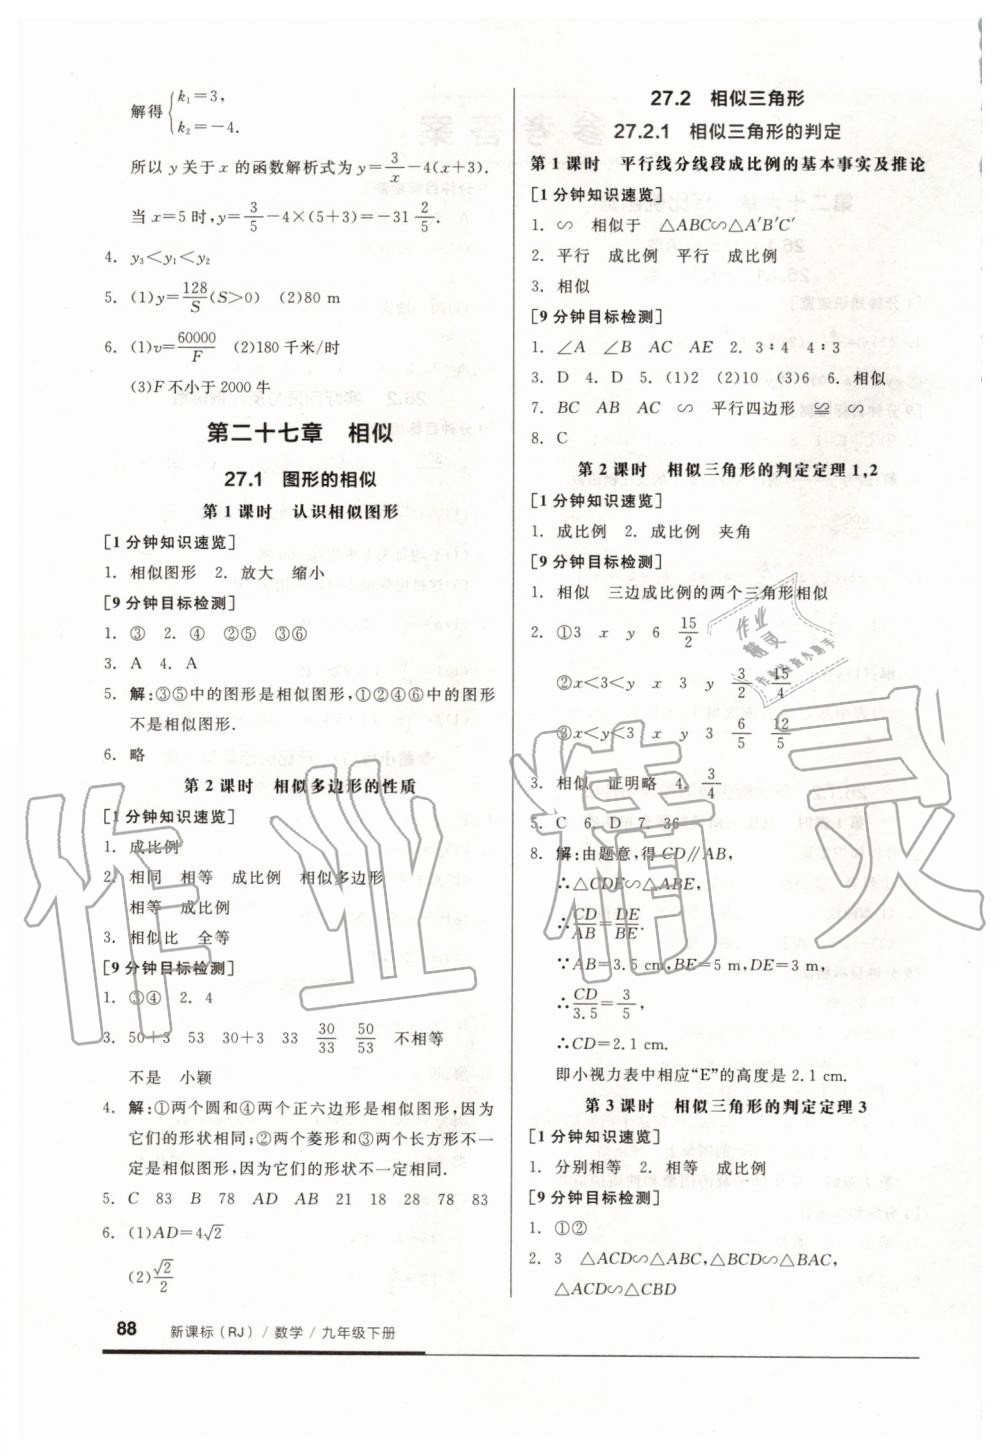 解得{k₁=3,
k₂=−4.
所以 y 关于 x 的函数解析式为 y=3/x−4(x+3).
当 x=5 时,y=3/5−4×(5+3)=−31 2/5.
4. y₃<y₁<y₂
5. (1)y=128/S(S>0) (2)80 m
6. (1)v=60000/F (2)180 千米/时
(3)F 不小于 2000 牛
第二十七章 相似
27.1 图形的相似
第 1 课时 认识相似图形
[1 分钟知识速览]
1. 相似图形 2. 放大 缩小
[9 分钟目标检测]
1. ③ 2. ④ ②⑤ ③⑥
3. A 4. A
5. 解:③⑤中的图形是相似图形,①②④⑥中的图形
不是相似图形.
6. 略
第 2 课时 相似多边形的性质
[1 分钟知识速览]
1. 成比例
2. 相同 相等 成比例 相似多边形
相等 成比例
3. 相似比 全等
[9 分钟目标检测]
1. ③④ 2. 4
3. 50+3 53 30+3 33 30/33 50/53 不相等
不是 小颖
4. 解:①两个圆和④两个正六边形是相似图形,因为
它们的形状相同;②两个菱形和③两个长方形不一
定是相似图形,因为它们的形状不一定相同.
5. C 83 B 78 AD AB 21 18 28 78 83
6. (1)AD=4√2
(2)√2/2
27.2 相似三角形
27.2.1 相似三角形的判定
第 1 课时 平行线分线段成比例的基本事实及推论
[1 分钟知识速览]
1. ∽ 相似于 △ABC∽△A′B′C′
2. 平行 成比例 平行 成比例
3. 相似
[9 分钟目标检测]
1. ∠A ∠B AC AE 2. 3∶4 4∶3
3. D 4. D 5. (1)2 (2)10 (3)6 6. 相似
7. BC AB AC ∽ 平行四边形 ≌ ∽
8. C
第 2 课时 相似三角形的判定定理 1,2
[1 分钟知识速览]
1. 成比例 2. 成比例 夹角
[9 分钟目标检测]
1. 相似 三边成比例的两个三角形相似
2. ①3 x y 6 15/2
②x<3<y x 3 y 3/2 15/4
③x<y<3 x y 3 6/5 12/5
3. 相似 证明略 4. 3/4
5. C 6. D 7. 36
8. 解:由题意,得 CD∥AB,
∴△CDE∽△ABE,
∴CD/AB=DE/BE.
∵AB=3.5 cm,BE=5 m,DE=3 m,
∴CD/3.5=3/5,
∴CD=2.1 cm.
即小视力表中相应“E”的高度是 2.1 cm.
第 3 课时 相似三角形的判定定理 3
[1 分钟知识速览]
1. 分别相等 2. 相等 成比例
[9 分钟目标检测]
1. ①②
2. 3 △ACD∽△ABC,△BCD∽△BAC,
△ACD∽△CBD
88 新课标(RJ)/数学/九年级下册
作业精灵
作业
精灵